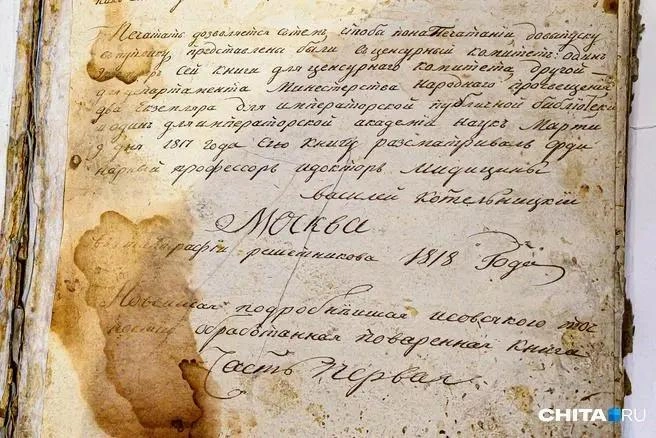 Печатать дозволяется стем, чтобы по напечатанiи до выпуску
в публику представлены были в ценсурный комитетъ: одинъ
сей книги для ценсурного комитета другой
для департамента Министерства Народнаго просвещения
два екземпляра для императорской публичной библиотеки
и одинъ для императорской академiи наукъ Марта
9 дня 1817 года Сью книгу разсматриваль Орди
нарный профессоръ и докторъ Медицины
василей котельницкiи
Москва
в типографiи решетникова 1818 Года
Новейшая подробнейшая и со всякого
обработанная поваренная книга
Часть Первая
CHITA.RU